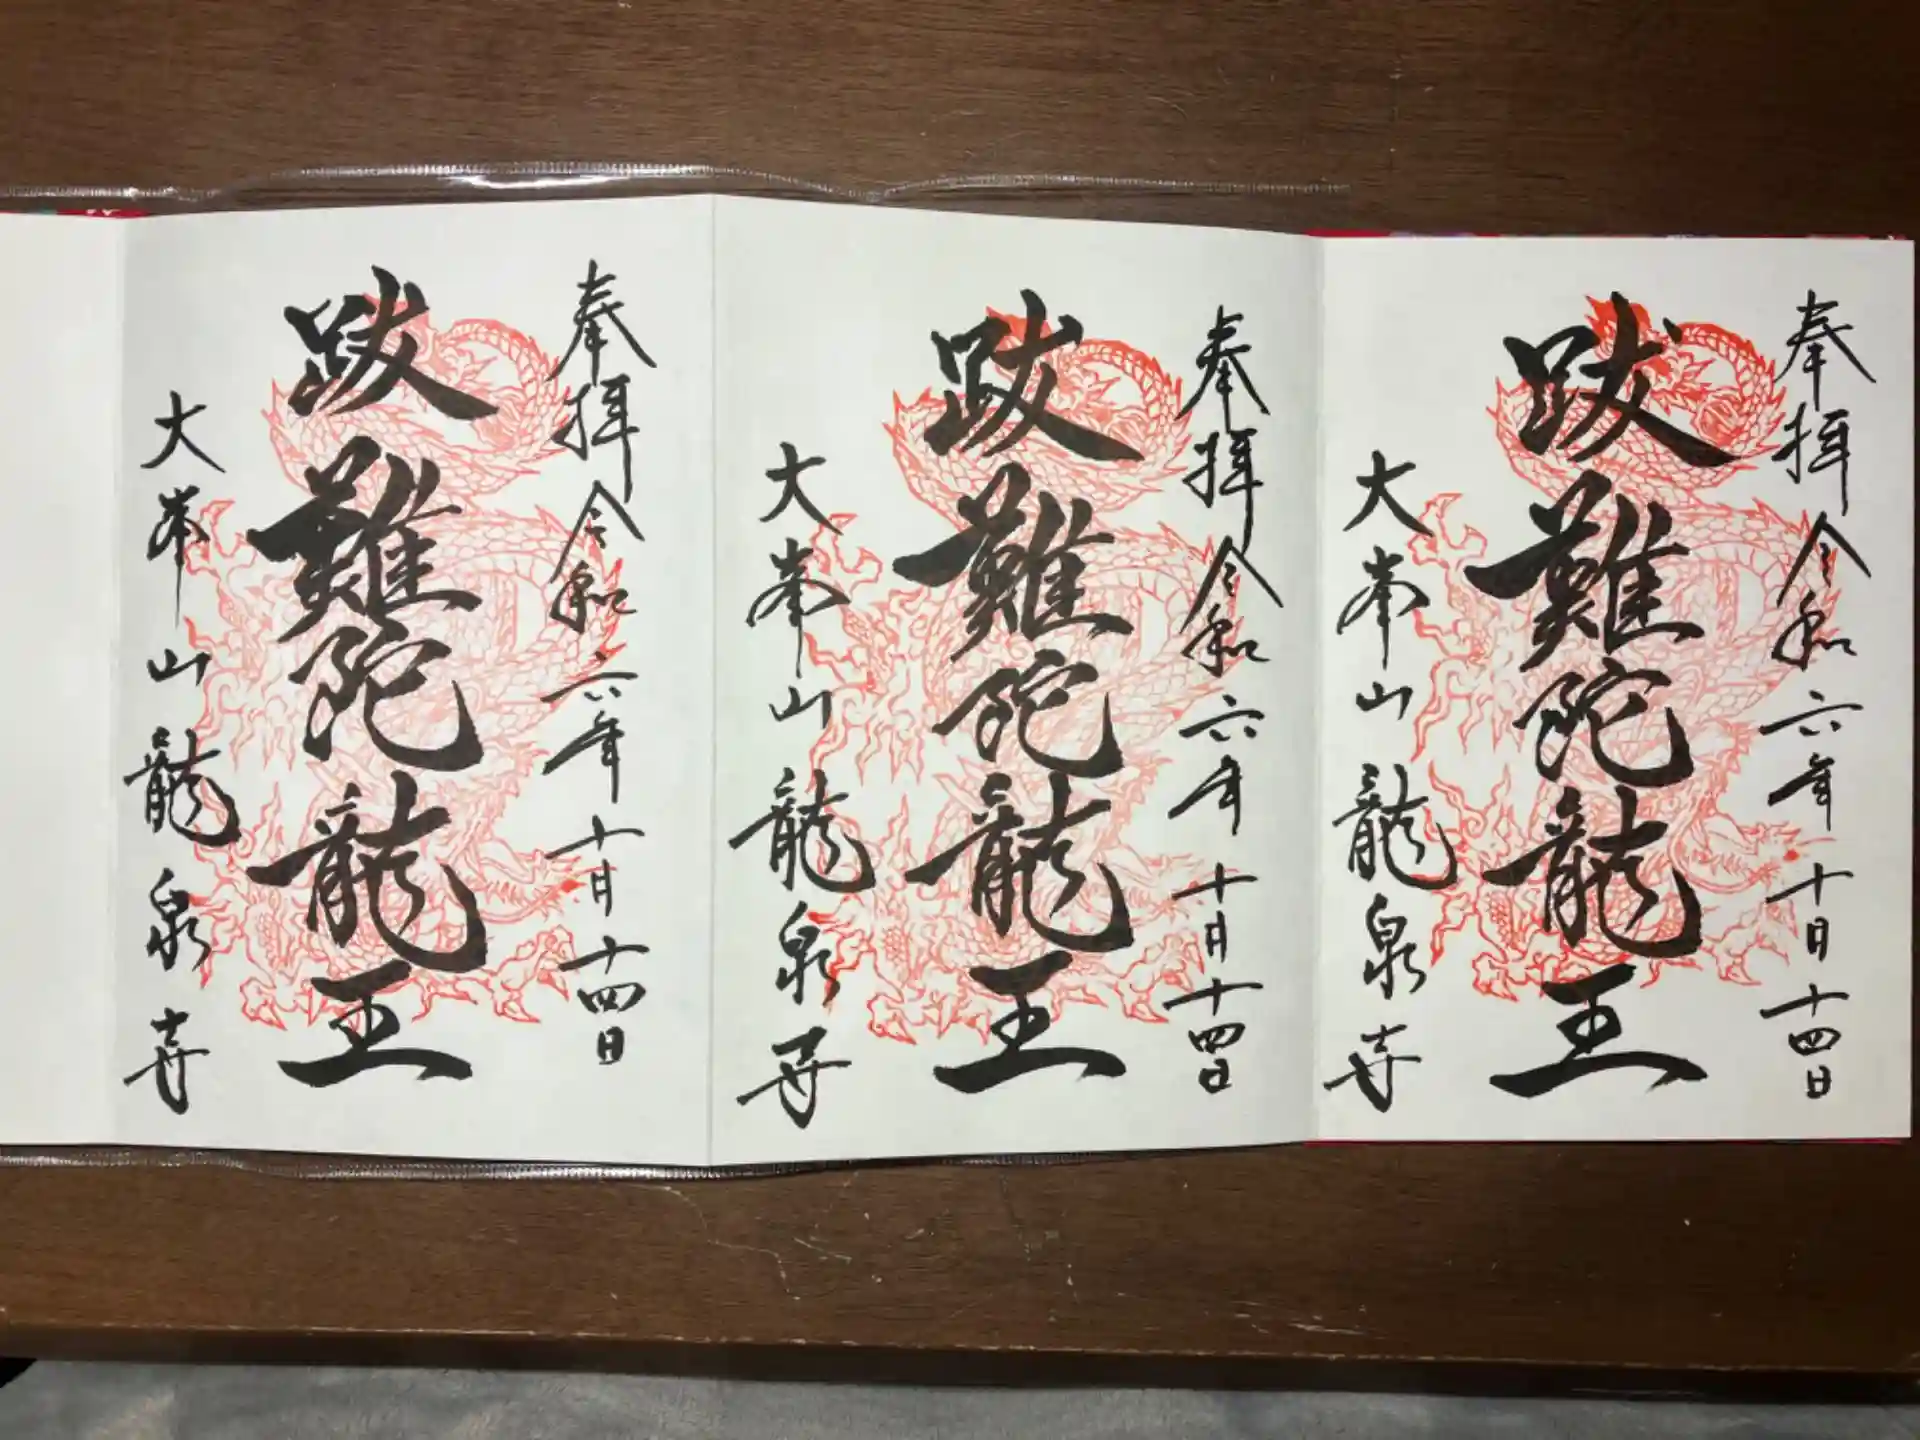 奉拝 令和六年十月十四日
跋難陀龍王
大峯山 龍泉寺
奉拝 令和六年十月十四日
跋難陀龍王
大峯山 龍泉寺
奉拝 令和六年十月十四日
跋難陀龍王
大峯山 龍泉寺